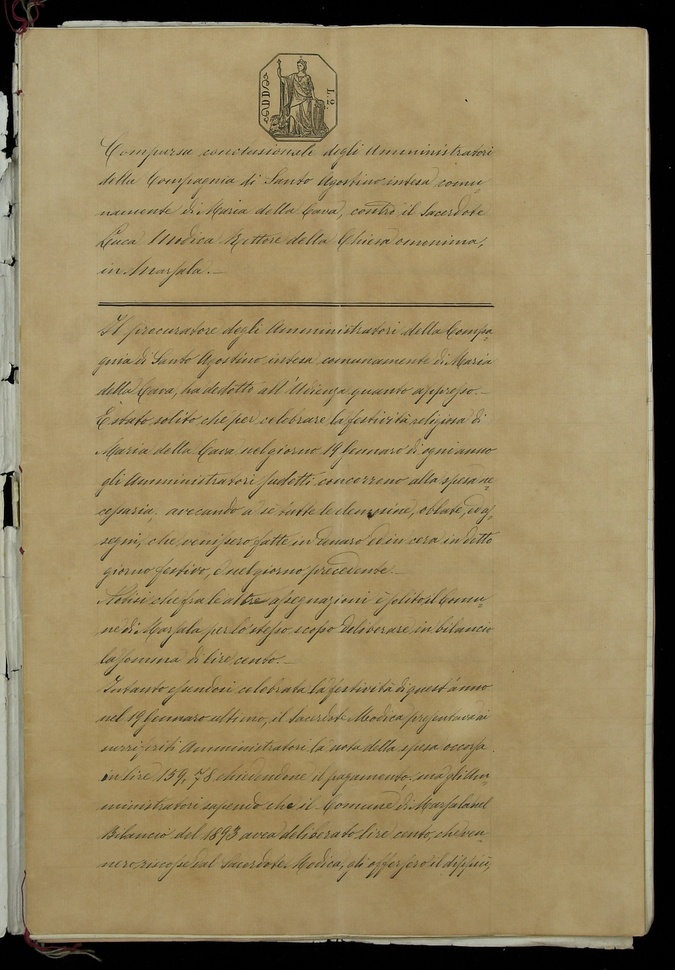 L. 2.
Comparsa conclusionale degli Amministratori
della Compagnia di Santo Agostino intesa comu=
namente di Maria della Cava, contro il Sacerdote
Luca Modica Rettore della Chiesa omonima,
in Marsala.—
Il procuratore degli Amministratori della Compa=
gnia di Santo Agostino intesa comunamente di Maria
della Cava, ha dedotto all'Udienza quanto appresso.—
È stato solito che per celebrare la festività religiosa di
Maria della Cava nel giorno 19 Gennaro di ogni anno
gli Amministratori sudetti concorreno alla spesa ne=
cessaria, avocando a sè tutte le elemosine, oblate, ed as=
segni, che venissero fatte in denaro ed in cera in detto
giorno festivo, e nel giorno precedente.—
Notisi che fra le altre assegnazioni è solito il Comu=
ne di Marsala per lo stesso scopo deliverare in bilancio
la somma di lire cento.—
Intanto essendosi celebrata la festività di quest'anno
nel 19 Gennaro ultimo, il Sacerdote Modica presentava ai
surriferiti Amministratori la nota della spesa occorsa
in lire 159,78 chiedendone il pagamento; ma gli Am=
ministratori sapendo che il Comune di Marsala nel
Bilancio del 1893 avea deliberato lire cento, che ven=
nero riscosse dal sacerdote Modica, gli offersero il dippiù,